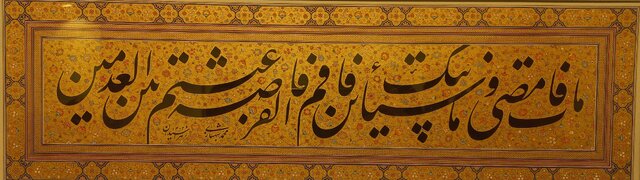 ما فات مضی و ما سیأتیک فاین قم فاغتنم الفرصة بین العدمین